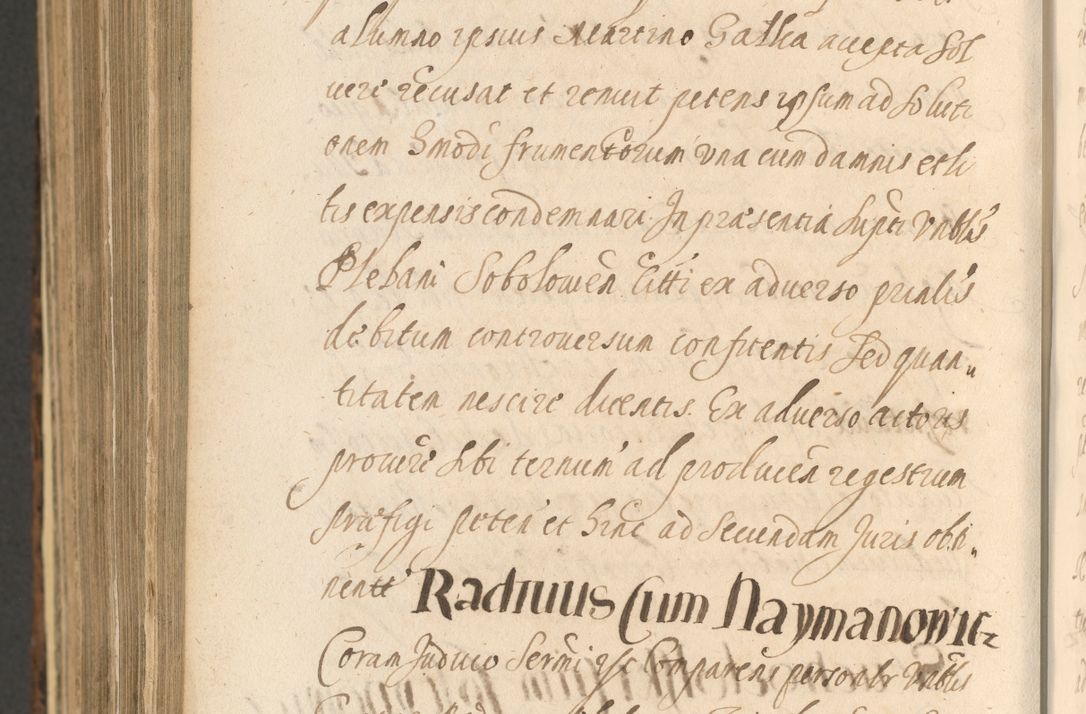 alumno ipsius Martino Gatka accepta Sol
vere recusat et renuit petens ipsum ad Soluti
onem Hmodi frumentorum una cum damnis et li
tis expensis condemnari. In præsentia Supti Vnblis
Plebani Sobolowen Citti ex adverso prinlis
debitum controversum confitentis Sed quan
titatem nescire dicentis. Ex adverso actoris
procure Sibi ternum ad producen regestrum
præfigi peten et hinc ad Secundam Juris obti
nentt Radiuus Cum Naymanowicz
Coram Judicio Sermi ipse Comparens personlr Vnblis